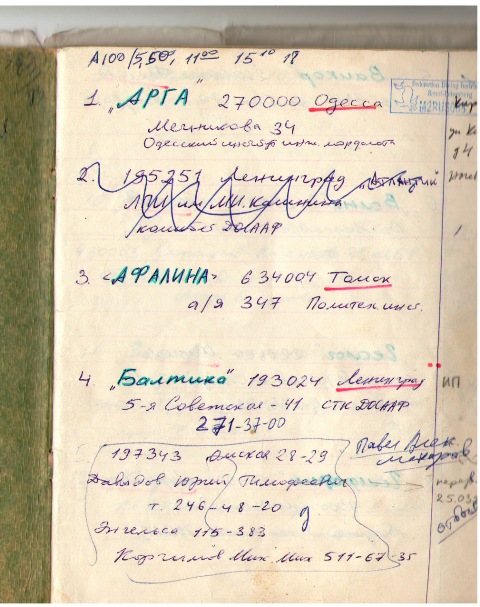 А100/5,50, 11⁰⁰ 15¹⁰ 18
1. „АРГА" 270000 Одесса
Мечникова 34
Одесский инст инж. морфлота
2. 195251 Ленинград „Атлантий
ЛПИ им. М.И. Калинина
комитет ДОСААФ
3. «АФАЛИНА» 634004 Томск
а/я 347 Политехинст.
4 „Балтика" 193024 Ленинград
5-я Советская - 41 СТК ДОСААФ
271-37-00
197343 Омская 28-29
Павел Алек.
Макаров
Давыдов Юрий Тимофеевич
т. 246-48-20
Энгельса 115-383
Мих. Мих 511-67-35
ИП
25.03